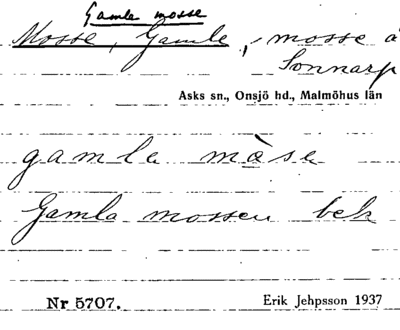 Gamla mosse
Mosse, Gamle, mosse å
Sonnarp
Asks sn., Onsjö hd., Malmöhus län
gamla måse
Gamla mossen bek
Nr 5707. Erik Jehpsson 1937